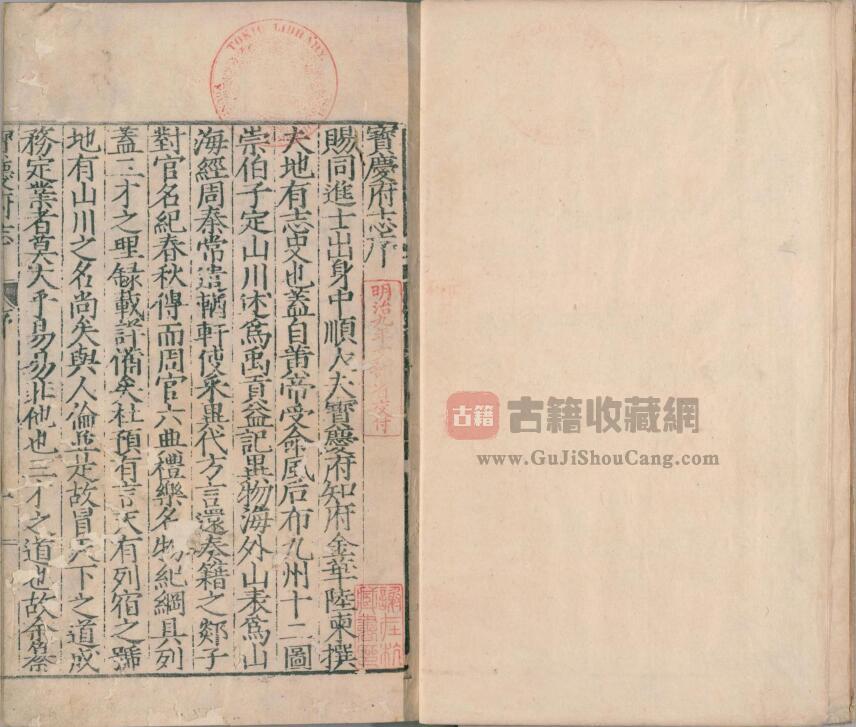 寶慶府志序
賜同進士出身中順大夫寶慶府知府金華陸柬撰
夫地有志史也蓋自黃帝受命風后布九州十二圖
崇伯子定山川述爲禹貢益記異物海外山表爲山
海經周秦常遣輶軒使采異代方言還奏籍之郯子
對官名紀春秋傳而周官六典禮樂名物紀綱具列
蓋三才之理錄載詳備矣杜預有言天有列宿之號
地有山川之名尚矣與人倫並足故冒天下之道成
務定業者莫大乎易易非他也三才之道也故余祭
寶慶府志
序
TOKIO LIBRARY
明治九年文部省交付
古籍
古籍收藏網
www.GuJiShouCang.com